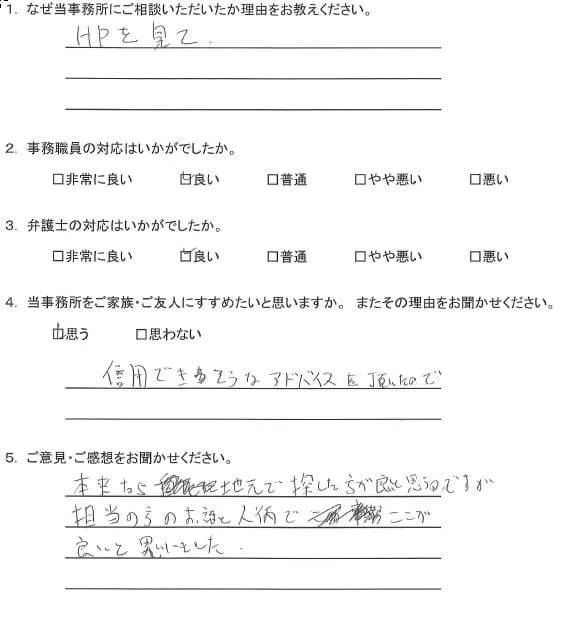 1. なぜ当事務所にご相談いただいたか理由をお教えください。
HPを見て.
2. 事務職員の対応はいかがでしたか。
□非常に良い ☑良い □普通 □やや悪い □悪い
3. 弁護士の対応はいかがでしたか。
□非常に良い ☑良い □普通 □やや悪い □悪い
4. 当事務所をご家族・ご友人にすすめたいと思いますか。 またその理由をお聞かせください。
☑思う □思わない
信用できるそうなアドバイスを頂いたので
5. ご意見・ご感想をお聞かせください。
本来なら地元で探した方が良いと思うのですが
担当の方のお話と人柄で ここが
良いと思いました.